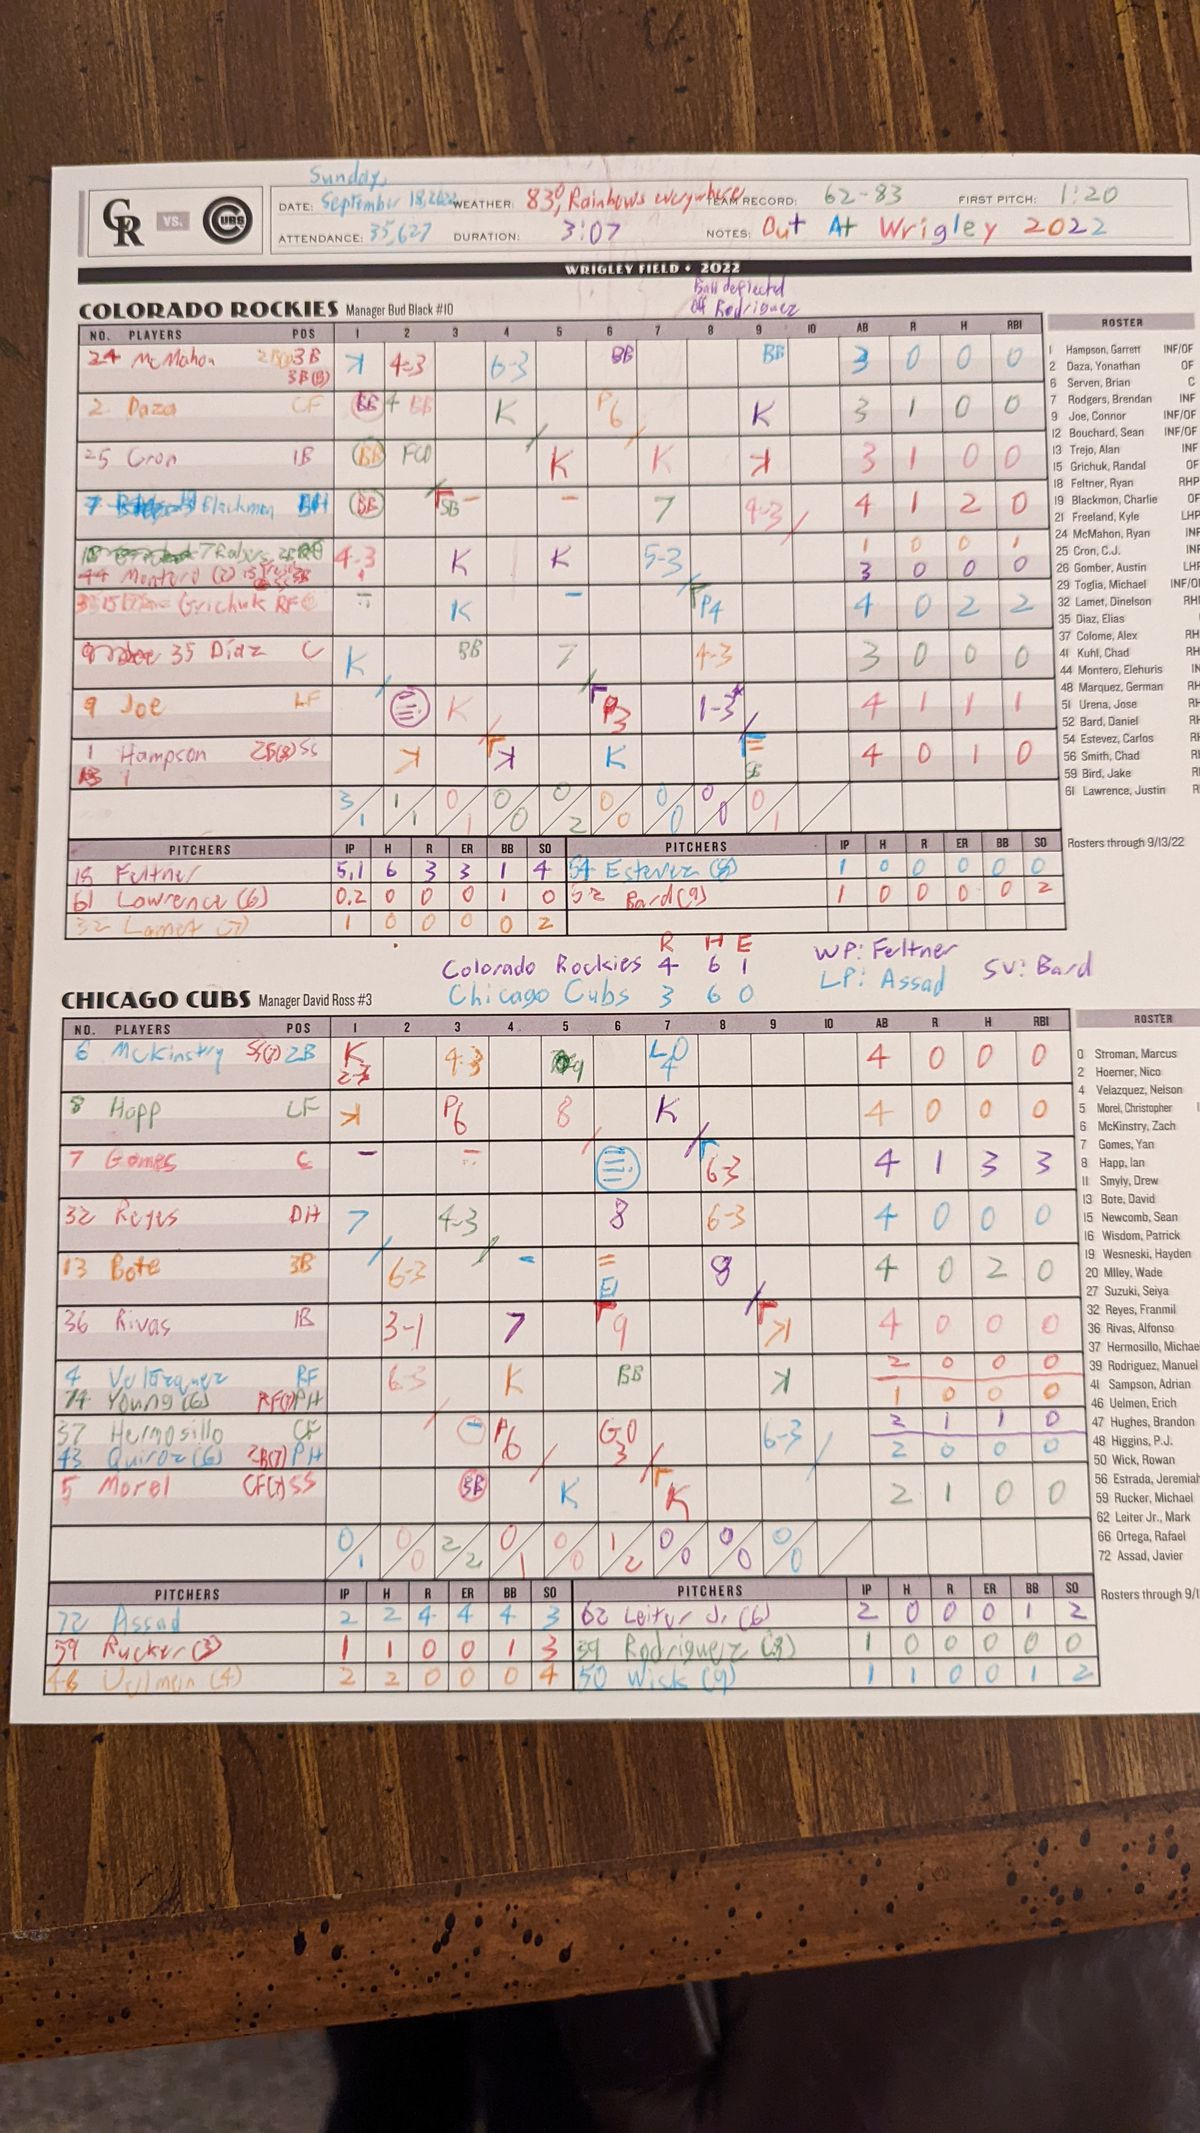 Sunday,
CR VS. CUBS
DATE: September 18, 2022 WEATHER: 83°, Rainbows everywhere TEAM RECORD: 62-83 FIRST PITCH: 1:20
ATTENDANCE: 35,627 DURATION: 3:07 NOTES: Out At Wrigley 2022
WRIGLEY FIELD • 2022
Ball deflected
off Rodriguez
COLORADO ROCKIES Manager Bud Black #10
NO. PLAYERS POS 1 2 3 4 5 6 7 8 9 10 AB R H RBI
24 McMahon 3B K 4-3 6-3 BB BB 3 0 0 0
3B(8)
2 Daza CF BB 4 BB K P6 K 3 1 0 0
25 Cron 1B BB FC K K K 3 1 0 0
7 Blackman DH BB SB - - 7 4-3 4 1 2 0
7 4-3 K K 5-3 1 0 0 1
44 Montero (2) 3 0 0 0
15 Grichuk RF K - P4 4 0 2 2
35 Diaz C K BB 7 4-3 3 0 0 0
9 Joe LF K P3 1-3 4 1 1 1
1 Hampson 2B(8) SS K K K 4 0 1 0
3/1 1/1 0/1 0/0 0/2 0/0 0/0 0/0 0/1
PITCHERS IP H R ER BB SO PITCHERS IP H R ER BB SO
18 Feltner 5.1 6 3 3 1 4 54 Estevez (8) 1 0 0 0 0 0
61 Lawrence (6) 0.2 0 0 0 1 0 52 Bard (9) 1 0 0 0 0 2
32 Lamet (7) 1 0 0 0 0 2
R H E
Colorado Rockies 4 6 1
Chicago Cubs 3 6 0
WP: Feltner
LP: Assad
SV: Bard
ROSTER
1 Hampson, Garrett INF/OF
2 Daza, Yonathan OF
6 Serven, Brian C
7 Rodgers, Brendan INF
9 Joe, Connor INF/OF
12 Bouchard, Sean INF/OF
13 Trejo, Alan INF
15 Grichuk, Randal OF
18 Feltner, Ryan RHP
19 Blackmon, Charlie OF
21 Freeland, Kyle LHP
24 McMahon, Ryan INF
25 Cron, C.J. INF
26 Gomber, Austin LHP
29 Toglia, Michael INF/O
32 Lamet, Dinelson RH
35 Diaz, Elias
37 Colome, Alex RH
41 Kuhl, Chad RH
44 Montero, Elehuris IN
48 Marquez, German RH
51 Urena, Jose RH
52 Bard, Daniel RH
54 Estevez, Carlos RH
56 Smith, Chad R
59 Bird, Jake R
61 Lawrence, Justin R
Rosters through 9/13/22
CHICAGO CUBS Manager David Ross #3
NO. PLAYERS POS 1 2 3 4 5 6 7 8 9 10 AB R H RBI
6 McKinstry SS(7) 2B K 4-3 9 LO 4 4 0 0 0
2-3
8 Happ LF K P6 8 K 4 0 0 0
7 Gomes C - 6-3 4 1 3 3
32 Reyes DH 7 4-3 8 6-3 4 0 0 0
13 Bote 3B 6-3 - = E1 8 4 0 2 0
36 Rivas 1B 3-1 7 9 K 4 0 0 0
4 Velazquez RF 6-3 K BB K 2 0 0 0
74 Young (6) RF(7) PH 1 0 0 0
37 Hermosillo CF - P6 GO 3 6-3 2 1 1 0
43 Quiroz (6) 2B(7) PH 2 0 0 0
5 Morel CF(7) SS BB K K 2 1 0 0
0/1 0/0 2/2 0/1 0/0 1/2 0/0 0/0 0/0
PITCHERS IP H R ER BB SO PITCHERS IP H R ER BB SO
72 Assad 2 2 4 4 4 3 62 Leiter Jr. (6) 2 0 0 0 1 2
59 Rucker (3) 1 1 0 0 1 3 39 Rodriguez (8) 1 0 0 0 0 0
46 Uelmen (4) 2 2 0 0 0 4 50 Wick (9) 1 1 0 0 1 2
ROSTER
0 Stroman, Marcus
2 Hoerner, Nico
4 Velazquez, Nelson
5 Morel, Christopher
6 McKinstry, Zach
7 Gomes, Yan
8 Happ, Ian
11 Smyly, Drew
13 Bote, David
15 Newcomb, Sean
16 Wisdom, Patrick
19 Wesneski, Hayden
20 Miley, Wade
27 Suzuki, Seiya
32 Reyes, Franmil
36 Rivas, Alfonso
37 Hermosillo, Michae
39 Rodriguez, Manuel
41 Sampson, Adrian
46 Uelmen, Erich
47 Hughes, Brandon
48 Higgins, P.J.
50 Wick, Rowan
56 Estrada, Jeremiah
59 Rucker, Michael
62 Leiter Jr., Mark
66 Ortega, Rafael
72 Assad, Javier
Rosters through 9/1